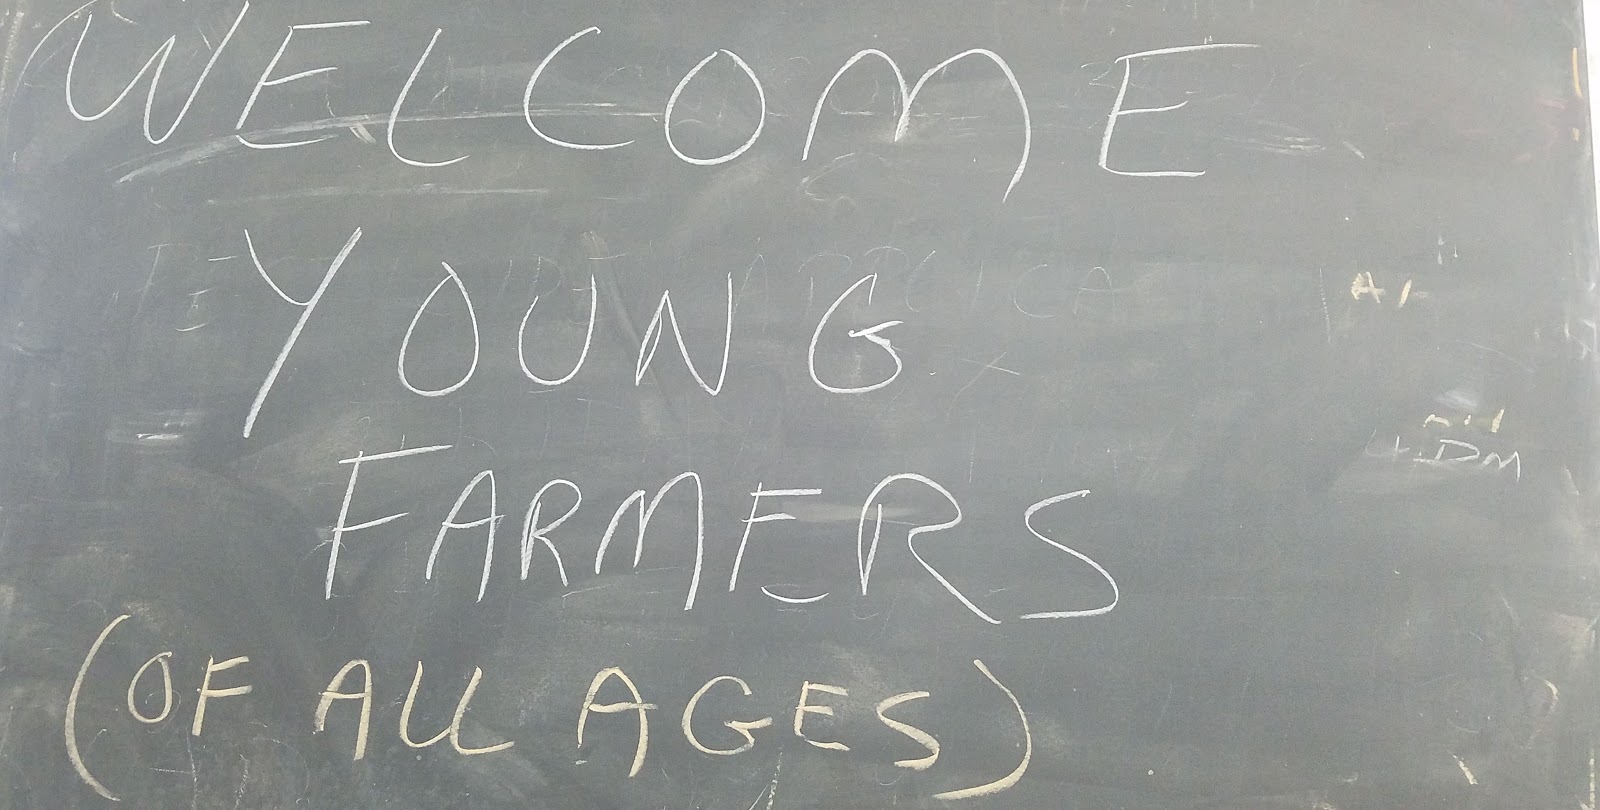 WELCOME
YOUNG
FARMERS
(OF ALL AGES)